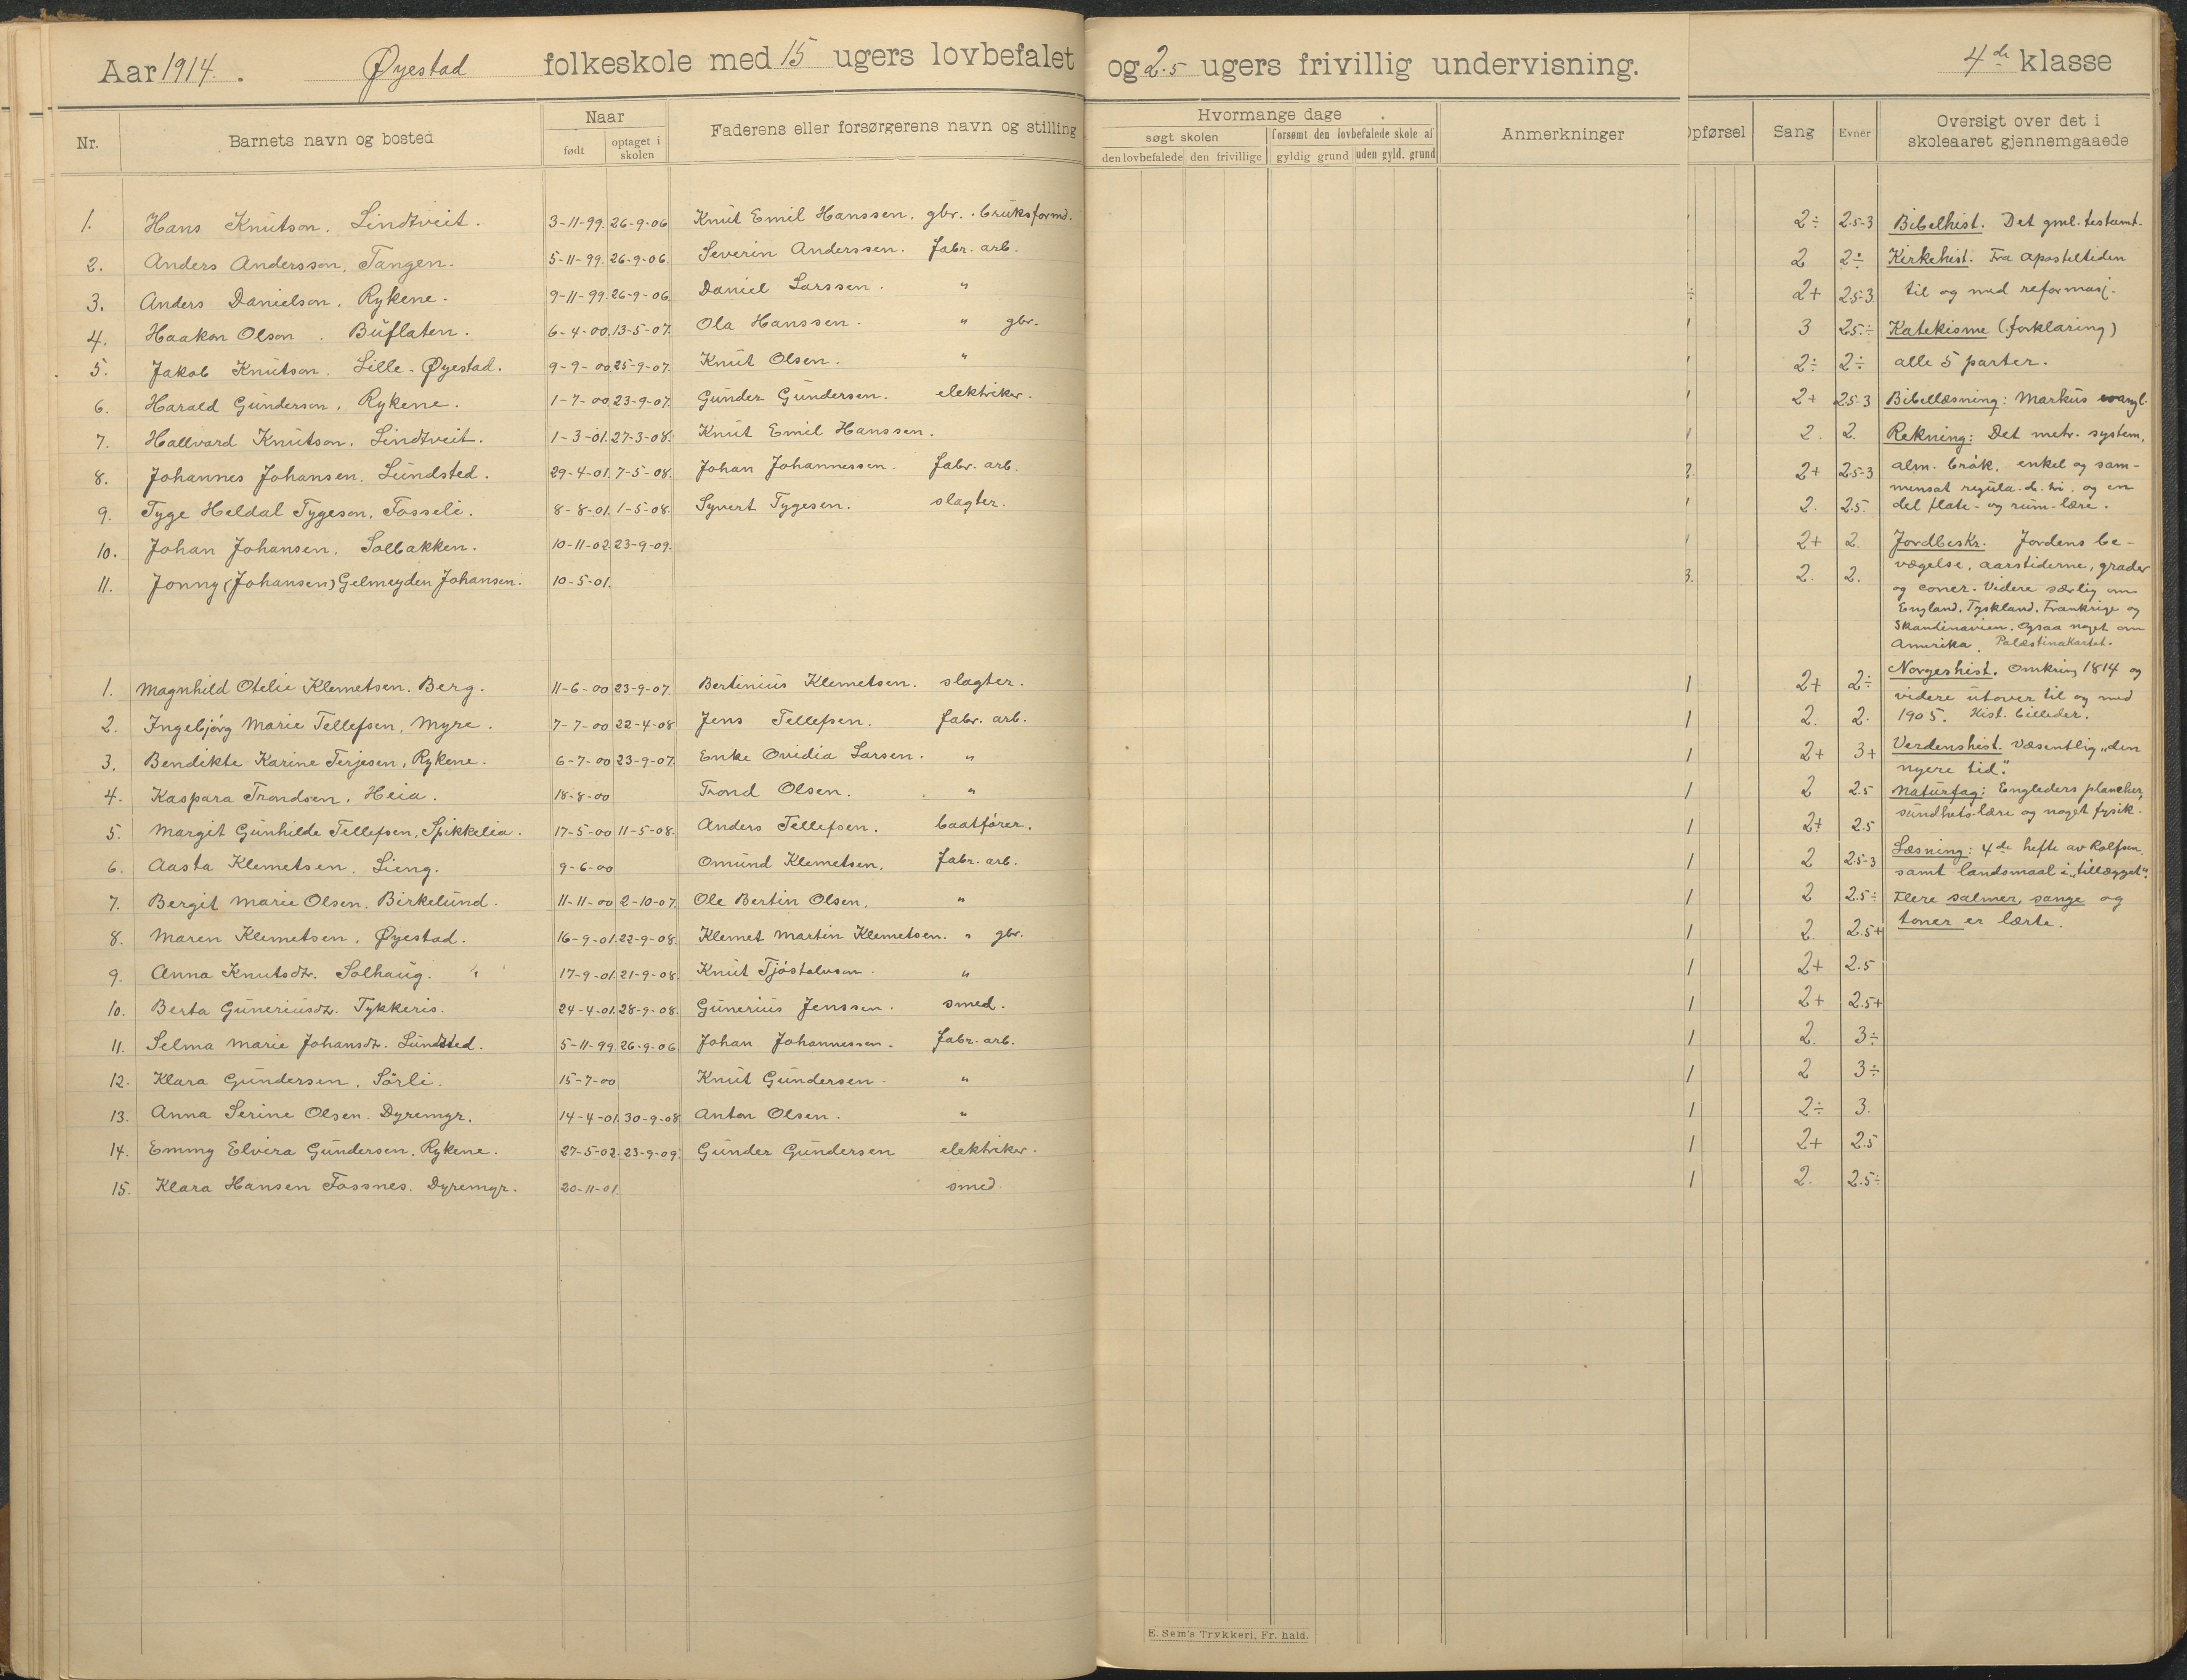 Aar 1914. Øyestad folkeskole med 15 ugers lovbefalet og 2.5 ugers frivillig undervisning. 4de klasse
Nr. Barnets navn og bosted Naar født optaget i skolen Faderens eller forsørgerens navn og stilling Hvormange dage søgt skolen den lovbefalede den frivillige forsømt den lovbefalede skole af gyldig grund uden gyld. grund Anmerkninger Opførsel Sang Evner Oversigt over det i skoleaaret gjennemgaaede
1. Hans Knutson. Lindtveit. 3-11-99. 26-9-06 Knut Emil Hanssen. gbr. bruksformd. 2÷ 2.5-3
2. Anders Andersson, Tangen. 5-11-99. 26-9-06. Severin Anderssen. fabr. arb. 2 2÷
3. Anders Danielson, Rykene. 9-11-99. 26-9-06. Daniel Larssen. " ÷ 2+ 2.5-3
4. Haakon Olson. Buflaten. 6-4-00. 13-5-07. Ola Hanssen. " gbr. 3 2.5÷
5. Jakob Knutson. Lille-Øyestad. 9-9-00 25-9-07. Knut Olsen. " 2÷ 2÷
6. Harald Gunderson, Rykene. 1-7-00. 23-9-07. Gunder Gundersen. elektriker. 2+ 2.5-3
7. Hallvard Knutson. Lindtveit. 1-3-01. 27-3-08. Knut Emil Hanssen. 2. 2.
8. Johannes Johansen. Lundsted. 29-4-01. 7-5-08. Johan Johannessen. fabr. arb. 2. 2+ 2.5-3
9. Tyge Heldal Tygeson, Fosseli. 8-8-01. 1-5-08. Syvert Tygesen. slagter. 2. 2.5.
10. Johan Johansen. Solbakken. 10-11-02. 23-9-09. 2+ 2.
11. Jonny (Johansen) Gelmeyden Johansen. 10-5-01. 3. 2. 2.
1. Magnhild Otelie Klemetsen. Berg. 11-6-00 23-9-07. Bertinius Klemetsen. slagter. 1 2+ 2÷
2. Ingebjørg Marie Tellefsen, Myre. 7-7-00 22-4-08 Jens Tellefsen. fabr. arb. 1 2. 2.
3. Bendikte Karine Terjesen, Rykene. 6-7-00 23-9-07. Enke Ovidia Larsen. " 1 2+ 3+
4. Kaspara Trondsen, Heia. 18-8-00 Trond Olsen. " 1 2 2.5
5. Margit Gunhilde Tellefsen, Spikkelia. 17-5-00 11-5-08. Anders Tellefsen. baatfører. 1 2+ 2.5
6. Aasta Klemetsen. Lieng. 9-6-00 Omund Klemetsen. fabr. arb. 1 2 2.5-3
7. Bergit Marie Olsen. Birkelund. 11-11-00 2-10-07. Ole Bertin Olsen. " 1 2 2.5÷
8. Maren Klemetsen, Øyestad. 16-9-01. 22-9-08. Klemet Martin Klemetsen. " gbr. 1 2. 2.5+
9. Anna Knutsdt. Solhaug. 17-9-01. 21-9-08. Knut Tjøstolvson. " 1 2+ 2.5
10. Berta Guneriusdt. Tykkeris. 24-4-01. 28-9-08. Gunerius Jenssen. smed. 1 2+ 2.5+
11. Selma Marie Johansdt. Lundsted. 5-11-99. 26-9-06. Johan Johannessen. fabr. arb. 1 2. 3÷
12. Klara Gundersen, Sørli. 15-7-00 Knut Gundersen. " 1 2 3÷
13. Anna Serine Olsen. Dyremyr. 14-4-01. 30-9-08. Anton Olsen. " 1 2÷ 3.
14. Emmy Elvira Gundersen. Rykene. 27-5-02. 23-9-09. Gunder Gundersen elektriker. 1 2+ 2.5
15. Klara Hansen Fossnes. Dyremyr. 20-11-01. smed. 1 2. 2.5÷
Bibelhist. Det gml. testamt.
Kirkehist. Fra aposteltiden
til og med reformasj.
Katekisme (forklaring)
alle 5 parter.
Bibellæsning: Markus evangl.
Rekning: Det metr. system,
alm. brøk. enkel og sam-
mensat regula-de-tri, og en
del flate- og rum-lære.
Jordbeskr. Jordens be-
vægelse, aarstiderne, grader
og coner. Videre særlig om
England, Tyskland, Frankrige og
Skandinavien. Ogsaa noget om
Amerika. Palæstinakartet.
Norgeshist. Omkring 1814 og
videre utover til og med
1905. Hist. billeder.
Verdenshist. Væsentlig „den
nyere tid".
Naturfag: Engleders plancher,
sundhets-lære og noget fysik.
Læsning: 4de hefte av Rolfsen
samt landsmaal i „tillægget".
Flere salmer, sange og
toner er lærte.
E. Sem's Trykkeri, Fr. hald.